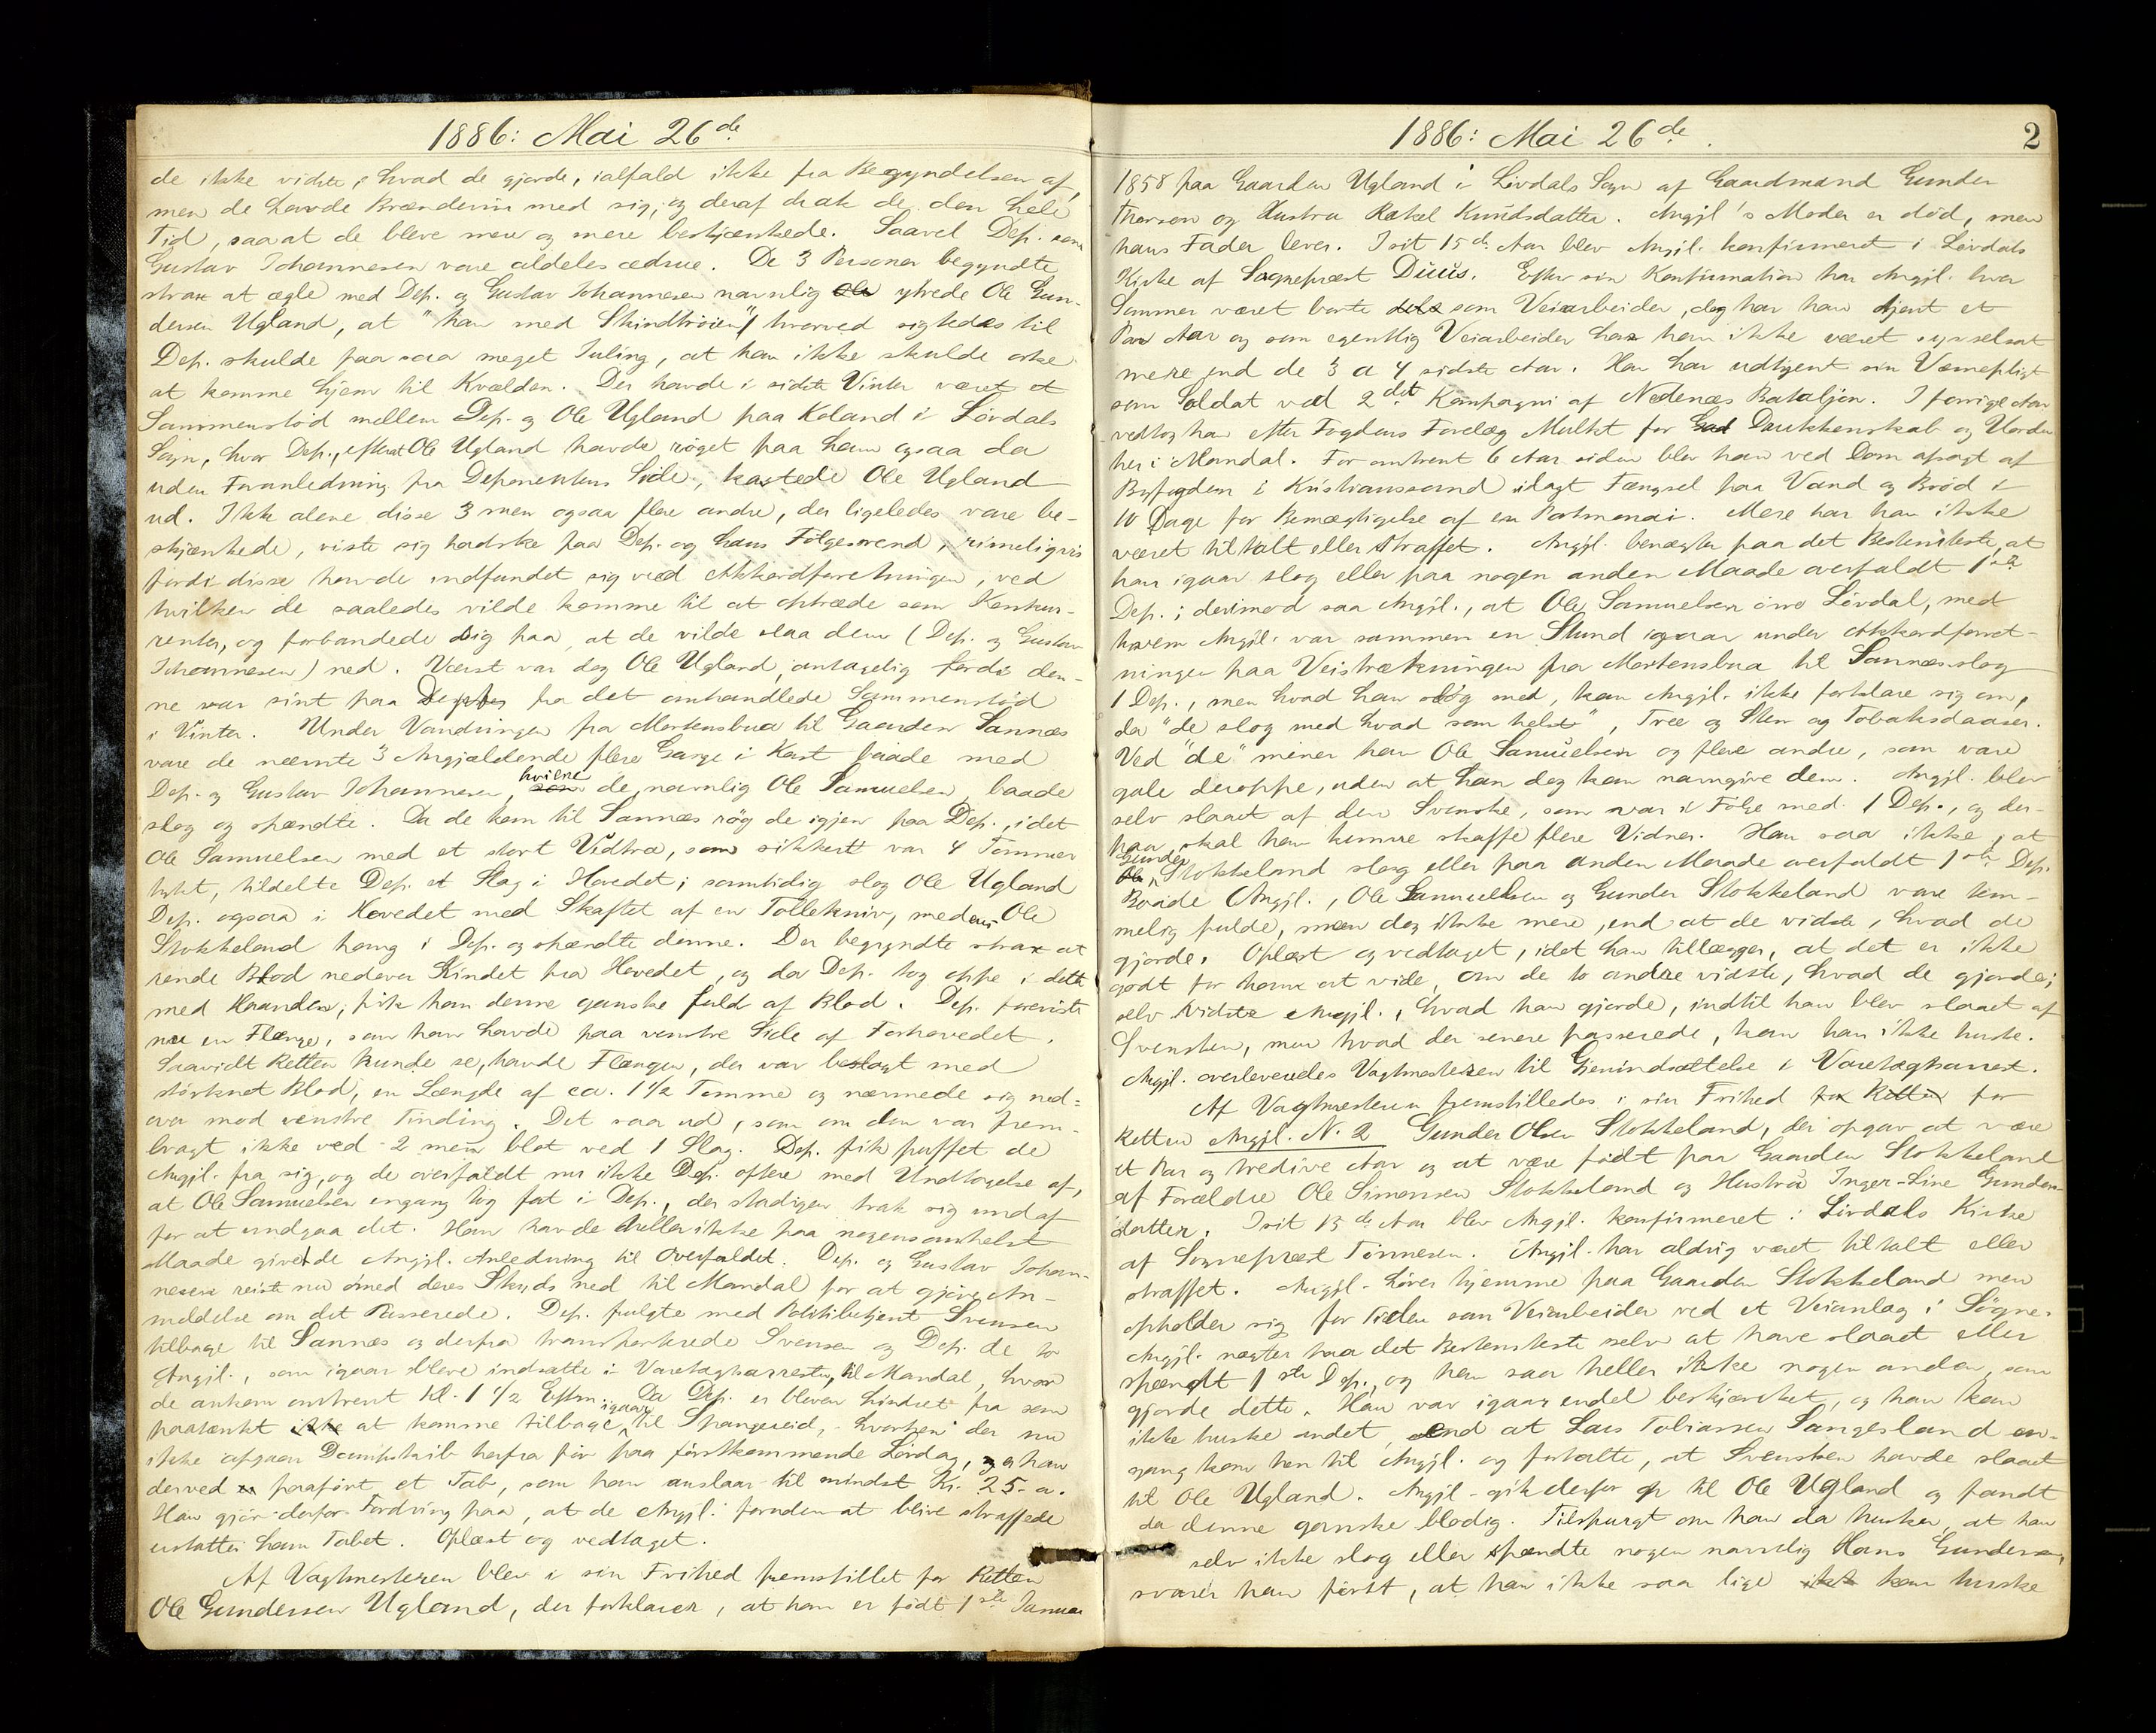 1886: Mai 26de
de ikke vidste, hvad de gjorde, ialfald ikke fra Begyndelsen af,
men de havde Brændevin med sig, og deraf drak de den hele
Tid, saa at de bleve mere og mere beskjænkede. Saavel Dep. som
Gustav Johannesen vare aldeles ædrue. De 3 Personer begyndte
strax at ægle med Dep. og Gustav Johannesen navnlig Ole ytrede Ole Gun-
dersen Ugland, at "han med Skindtrøien", hvorved sigtedes til
Dep. skulde faa saa meget Juling, at han ikke skulde orke
at komme hjem til Kvælden. Der havde i sidste Vinter været et
Sammenstød mellem Dep. og Ole Ugland paa Koland i Løvdals
Sogn, hvor Dep., efterat Ole Ugland havde røget paa ham ogsaa da
uden Foranledning fra Deponentens Side, kastede Ole Ugland
ud. Ikke alene disse 3 men ogsaa flere andre, der ligeledes vare be-
skjænkede, viste sig hadske paa Dep. og hans Følgesvend, rimeligvis
fordi disse havde indfundet sig ved Akkordforretningen, ved
hvilken de saaledes vilde komme til at optræde som Konkur-
renter, og forbandede sig paa, at de vilde slaa dem (Dep. og Gustav
Johannesen) ned. Værst var dog Ole Ugland, antagelig fordi den-
ne var sint paa Dep. fra det omhandlede Sammenstød
i Vinter. Under Vandringen fra Mortensbua til Gaarden Sannæs
vare de nævnte 3 Angjældende flere Gange i Kast baade med
Dep. og Gustav Johannesen, hvilke som de, navnlig Ole Samuelsen, baade
slog og spændte. Da de kom til Sannæs røg de igjen paa Dep., idet
Ole Samuelsen med et stort Vedtræ, som sikkert var 4 Tommer
tykt, tildelte Dep. et Slag i Hovedet; samtidig slog Ole Ugland
Dep. ogsaa i Hovedet med Skaftet af en Tollekniv, medens Ole
Stokkeland hang i Dep. og spændte denne. Der begyndte strax at
rende Blod nedover Kindet fra Hovedet, og da Dep. tog oppe i dette
med Haanden, fik han denne ganske fuld af Blod. Dep. foreviste
nu en Flænge, som han havde paa venstre Side af Forhovedet.
Saavidt Retten kunde se, havde Flængen, der var belagt med
størknet Blod, en Længde af ca. 1 1/2 Tomme og nærmede sig ned-
over mod venstre Tinding. Det saa ud, som om den var frem-
bragt ikke ved 2 men blot ved 1 Slag. Dep. fik puffet de
Angjl. fra sig, og de overfaldt nu ikke Dep. oftere med Undtagelse af,
at Ole Samuelsen engang tog fat i Dep., der stadigen trak sig undaf
for at undgaa det. Han havde heller ikke paa nogensomhelst
Maade givet de Angjl. Anledning til Overfaldet. Dep. og Gustav Johan-
nesen reiste nu med deres Skyds ned til Mandal for at gjøre An-
meldelse om det Passerede. Dep. fulgte med Politibetjent Svensen
tilbage til Sannæs og derfra transporterede Svensen og Dep. de to
Angjl., som igaar bleve indsatte i Varetægtsarresten, til Mandal, hvor
de ankom omtrent Kl. 1 1/2 Efterm. Da Dep. er bleven hindret fra som
paatænkt ikke at komme tilbage igaar til Spangereid, hvorhen der nu
ikke afgaar Dampskib herfra før paa førstkommende Lørdag, er han
derved paaført et Tab, som han anslaar til mindst Kr. 25.
Han gjør derfor Fordring paa, at de Angjl. foruden at blive straffede
erstatter ham Tabet. Oplæst og vedtaget.
Af Vagtmesteren blev i sin Frihed fremstillet for Retten
Ole Gundersen Ugland, der forklarer, at han er født 1ste Januar
1886: Mai 26de.
2
1858 paa Gaarden Ugland i Løvdals Sogn af Gaardmand Gunder
Thorsen og Hustru Rakel Knudsdatter. Angjl's Moder er død, men
hans Fader lever. I sit 15de Aar blev Angjl. konfirmeret i Løvdals
Kirke af Sognepræst Duus. Efter sin Konfirmation har Angjl. hver
Sommer været borte dels som Veiarbeider, dog har han tjent et
Par Aar og som egentlig Veiarbeider har han ikke været sysselsat
mere end de 3 a 4 sidste Aar. Han har udtjent sin Værnepligt
som Soldat ved 2det Kompagni af Nedenæs Bataljon. I forrige Aar
vedtog han efter Fogdens Forelæg Mulkt for Gad Drukkenskab og Uorden
her i Mandal. For omtrent 6 Aar siden blev han ved Dom afsagt af
Byfogden i Kristianssand ilagt Fængsel paa Vand og Brød i
10 Dage for Bemægtigelse af en Portmonai. Mere har han ikke
været tiltalt eller straffet. Angjl. benægter paa det Bestemteste, at
han igaar slog eller paa nogen anden Maade overfaldt 1ste
Dep.; derimod saa Angjl., at Ole Samuelsen øvre Løvdal, med
hvem Angjl. var sammen en Stund igaar under Akkordforret-
ningen paa Veistrækningen fra Mortensbua til Sannæs slog
1 Dep., men hvad han slog med, kan Angjl. ikke forklare sig om,
da "de slog med hvad som helst", Træ og Sten og Tobaksdaaser.
Ved "de" mener han Ole Samuelsen og flere andre, som vare
gale deroppe, uden at han dog kan navngive dem. Angjl. blev
selv slaaet af den Svenske, som var i Følge med 1 Dep., og der-
paa skal han kunne skaffe flere Vidner. Han saa ikke, at
Gunder Ole Stokkeland slog eller paa anden Maade overfaldt 1ste Dep.
Baade Angjl., Ole Samuelsen og Gunder Stokkeland vare tem-
melig fulde, men dog ikke mere, end at de vidste, hvad de
gjorde. Oplæst og vedtaget, idet han tillægger, at det er ikke
godt for ham at vide, om de to andre vidste, hvad de gjorde;
selv vidste Angjl., hvad han gjorde, indtil han blev slaaet af
Svensken, men hvad der senere passerede, kan han ikke huske.
Angjl. overleveredes Vagtmesteren til Gjenindsættelse i Varetægtsarrest.
Af Vagtmesteren fremstilledes i sin Frihed for Retten for
Retten Angjl. N. 2 Gunder Olsen Stokkeland, der opgav at være
et Par og tredive Aar og at være født paa Gaarden Stokkeland
af Forældre Ole Simonsen Stokkeland og Hustru Inger-Line Gunders-
datter. I sit 15de Aar blev Angjl. konfirmeret i Løvdals Kirke
af Sognepræst Tønnesen. Angjl. har aldrig været tiltalt eller
straffet. Angjl. hører hjemme paa Gaarden Stokkeland men
opholder sig for Tiden som Veiarbeider ved et Veianlæg i Søgne.
Angjl. nægter paa det Bestemteste selv at have slaaet eller
spændt 1ste Dep., og han saa heller ikke nogen anden, som
gjorde dette. Han var igaar endel beskjænket, og han kan
ikke huske andet, end at Lars Tobiassen Sangesland en-
gang kom hen til Angjl. og fortalte, at Svensken havde slaaet
til Ole Ugland. Angjl. gik derfor op til Ole Ugland og fandt
da denne ganske blodig. Tilspurgt om han da husker, at han
selv ikke slog eller spændte nogen navnlig Hans Gundersen,
svarer han først, at han ikke saa lige ikke kan huske